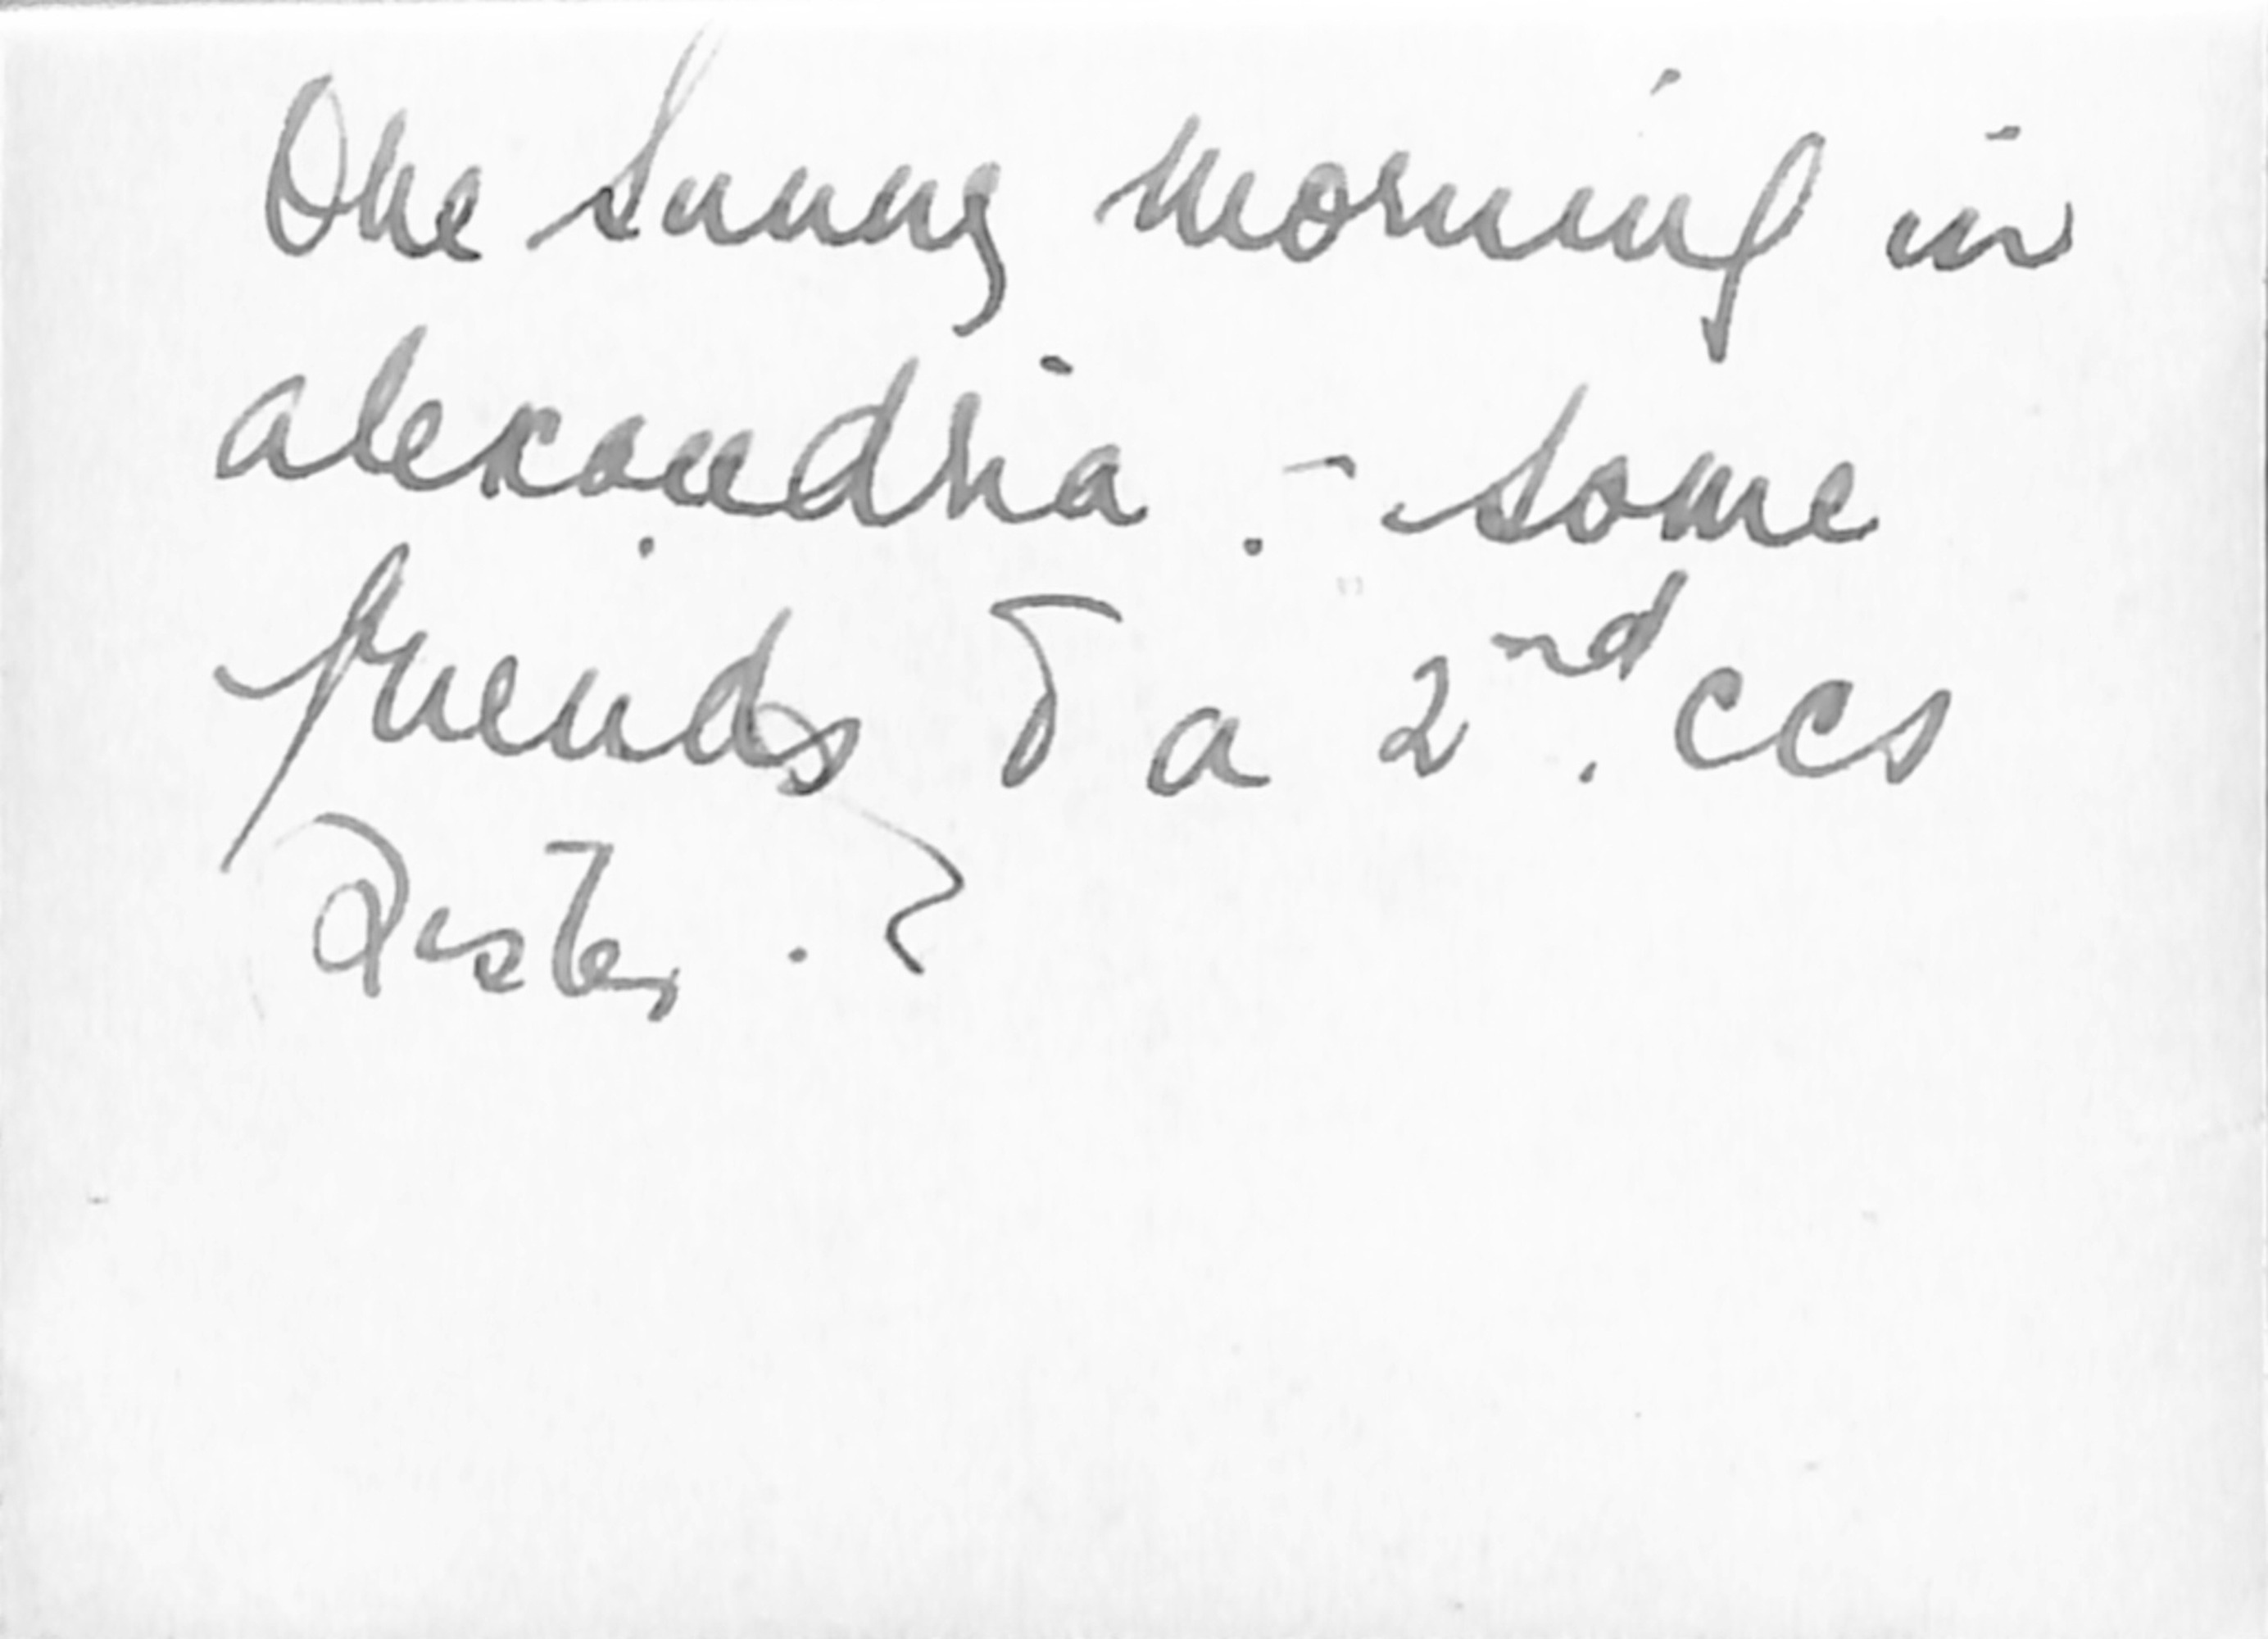 One sunny morning in
alexandria. - some
friends & a 2nd. ccs
Sister.